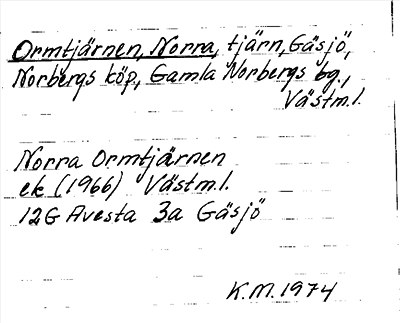 Ormtjärnen, Norra, tjärn, Gäsjö,
Norbergs köp, Gamla Norbergs bg.,
Västm.l.
Norra Ormtjärnen
ek (1966) Västm.l.
12G Avesta 3a Gäsjö
K.M. 1974